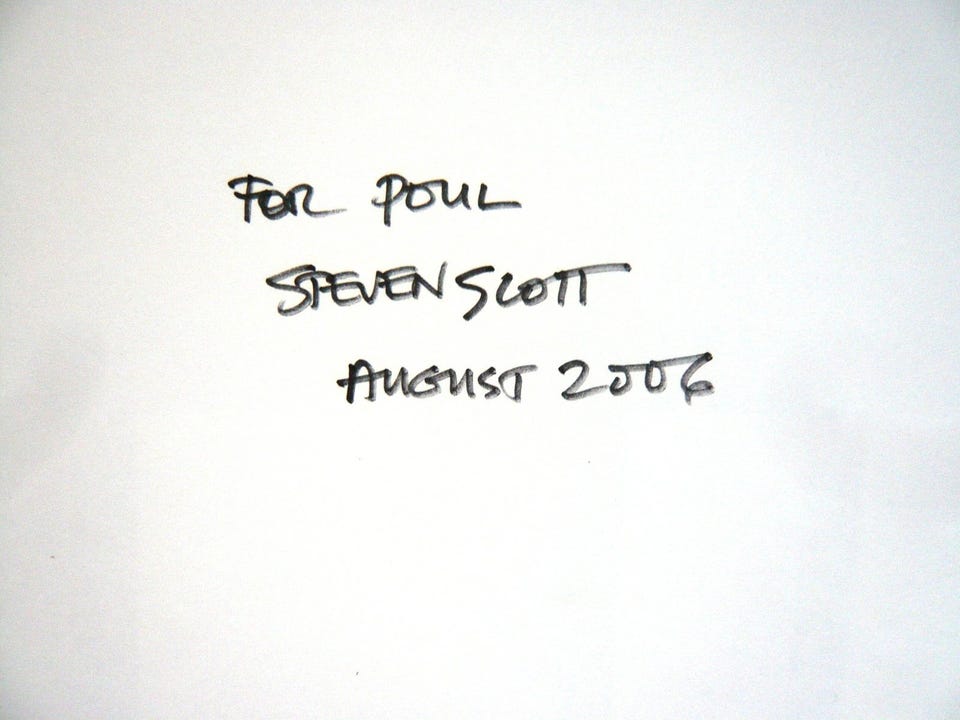 FOR POUL
STEVEN SCOTT
AUGUST 2006